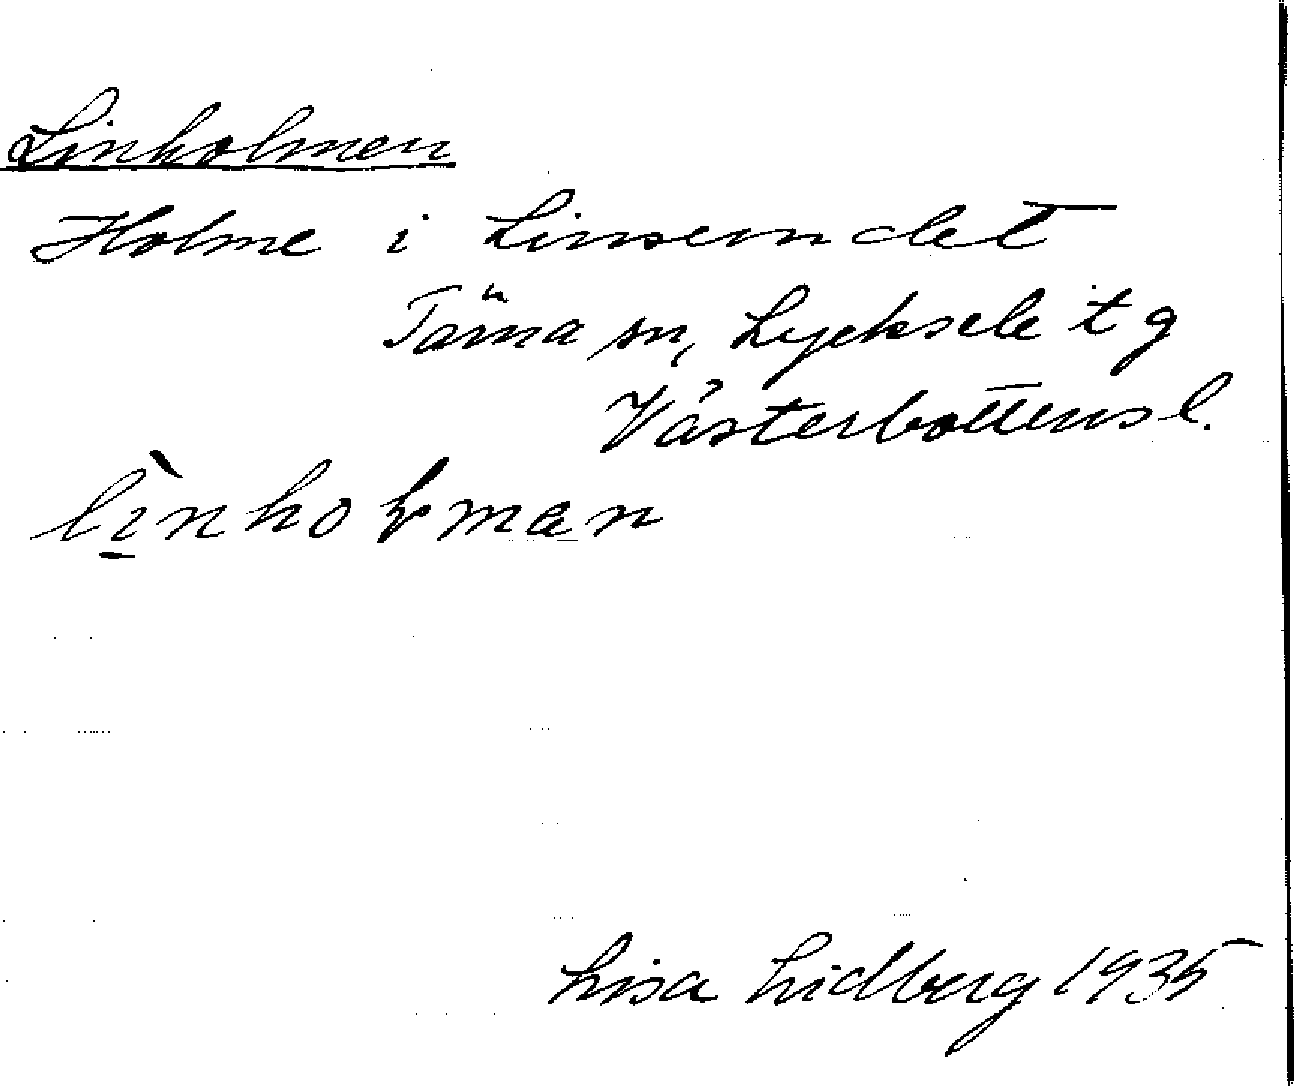 Linholmen
Holme i Linsundet
Tärna sn, Lycksele t g
Västerbottens l.
lìnhoɫman
Lisa Lidberg 1935